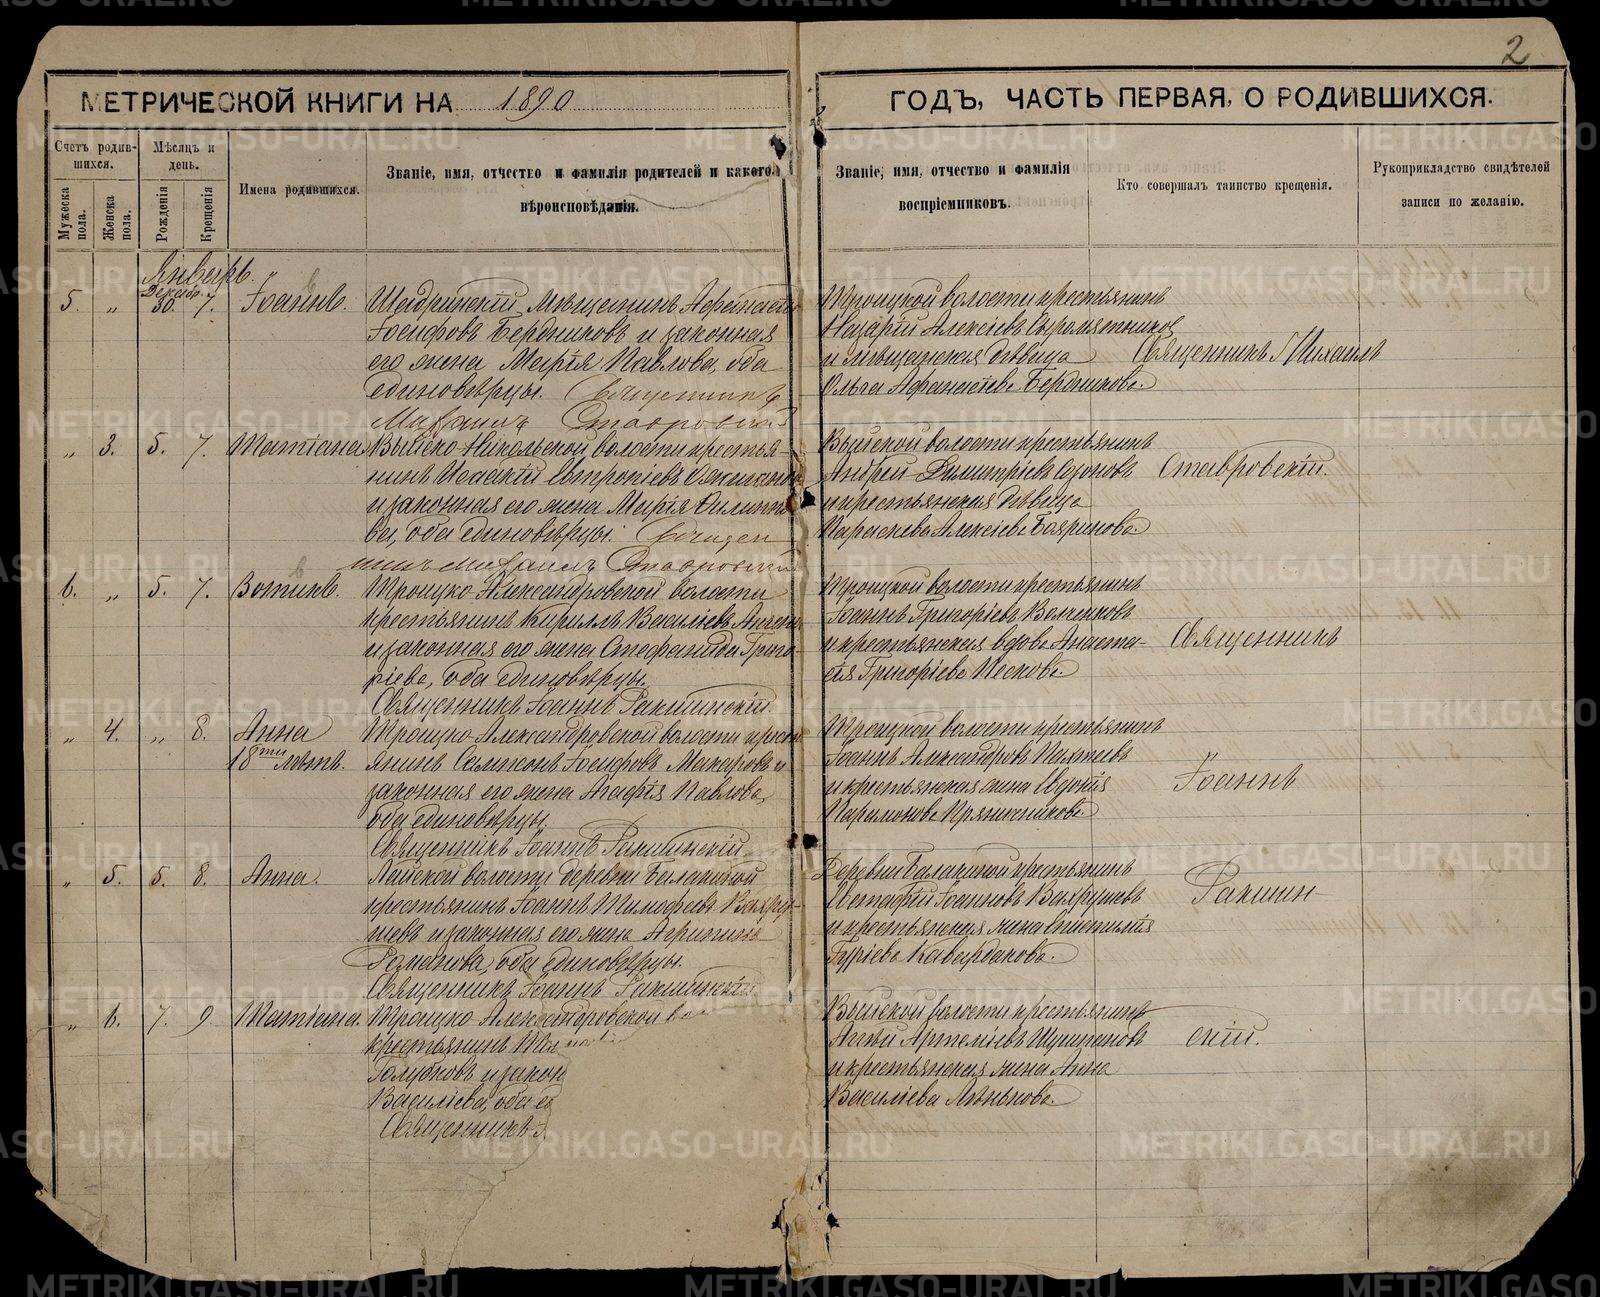 2
МЕТРИЧЕСКОЙ КНИГИ НА 1890 ГОДЪ, ЧАСТЬ ПЕРВАЯ, О РОДИВШИХСЯ.
Счетъ родив-
шихся.
Мужеска пола.
Женска пола.
Мѣсяцъ и
день.
Рожденія
Крещенія
Имена родившихся.
Званіе, имя, отчество и фамилія родителей и какого
вѣроисповѣданія.
Званіе, имя, отчество и фамилія
воспріемниковъ.
Кто совершалъ таинство крещенія.
Рукоприкладство свидѣтелей
записи по желанію.
Январь.
Декабр.
5. „ 30. 7. Іоаннъ.
Шадринскій Мѣщанинъ Афанасій
Іосифовъ Бердниковъ и законная
его жена Марія Павлова, оба
единовѣрцы. Священникъ
Михаилъ Ставровскій
Троицкой волости крестьянинъ
Назарій Алексіевъ Сыромятников
и мѣщанская дѣвица
Ольга Афанасіева Бердникова.
Священникъ Михаилъ
„ 3. 5. 7. Татіана
Выйско-Никольской волости крестья-
нинъ
и законная его жена Марія Филиппо
ва, оба единовѣрцы. Священ
никъ Михаилъ Ставровскій
Выйской волости крестьянинъ
Андрей Димитріевъ
и крестьянская дѣвица
Параскева Алексіева Бояринова.
Ставровскій.
6. „ 5. 7. Вотикъ.
Троицко-Александровской волости
крестьянинъ Кириллъ Василіевъ
и законная его жена Стефанида Григо-
ріева, оба единовѣрцы.
Священникъ Іоаннъ Ракшинскій.
Троицкой волости крестьянинъ
Іоаннъ Григоріевъ Волченковъ
и крестьянская вдова Анаста-
сія Григоріева Пескова.
Священникъ
„ 4. „ 8. Анна
18ти лѣтъ.
Троицко-Александровской волости крест
янинъ Сампсонъ Іосифовъ Макаровъ и
законная его жена Агафія Павлова,
оба единовѣрцы.
Священникъ Іоаннъ Ракшинскій
Троицкой волости крестьянинъ
Іоаннъ Александровъ Пахтеевъ
и крестьянская жена Евдокія
Парамонова Пряничникова.
Іоаннъ
„ 5. 5. 8. Анна.
Лайской волости деревни Балакиной
крестьянинъ Іоаннъ Тимофеевъ Вахру-
шевъ и законная его жена
Романова, оба единовѣрцы.
Священникъ Іоаннъ Ракшинскій
Деревни Балакиной крестьянинъ
Евстафій Іоанновъ Вахрушевъ
и крестьянская жена
Гуріева Кавардакова.
Ракшин-
„ 6. 7. 9. Татіана.
Троицко-Александровской во
крестьянинъ
Голубковъ и закон
Василіева, оба ед
Священникъ
Выйской волости крестьянинъ
Артеміевъ
и крестьянская жена Анна
Василіева Лѣнькова.
скій.
METRIKI.GASO-URAL.RU